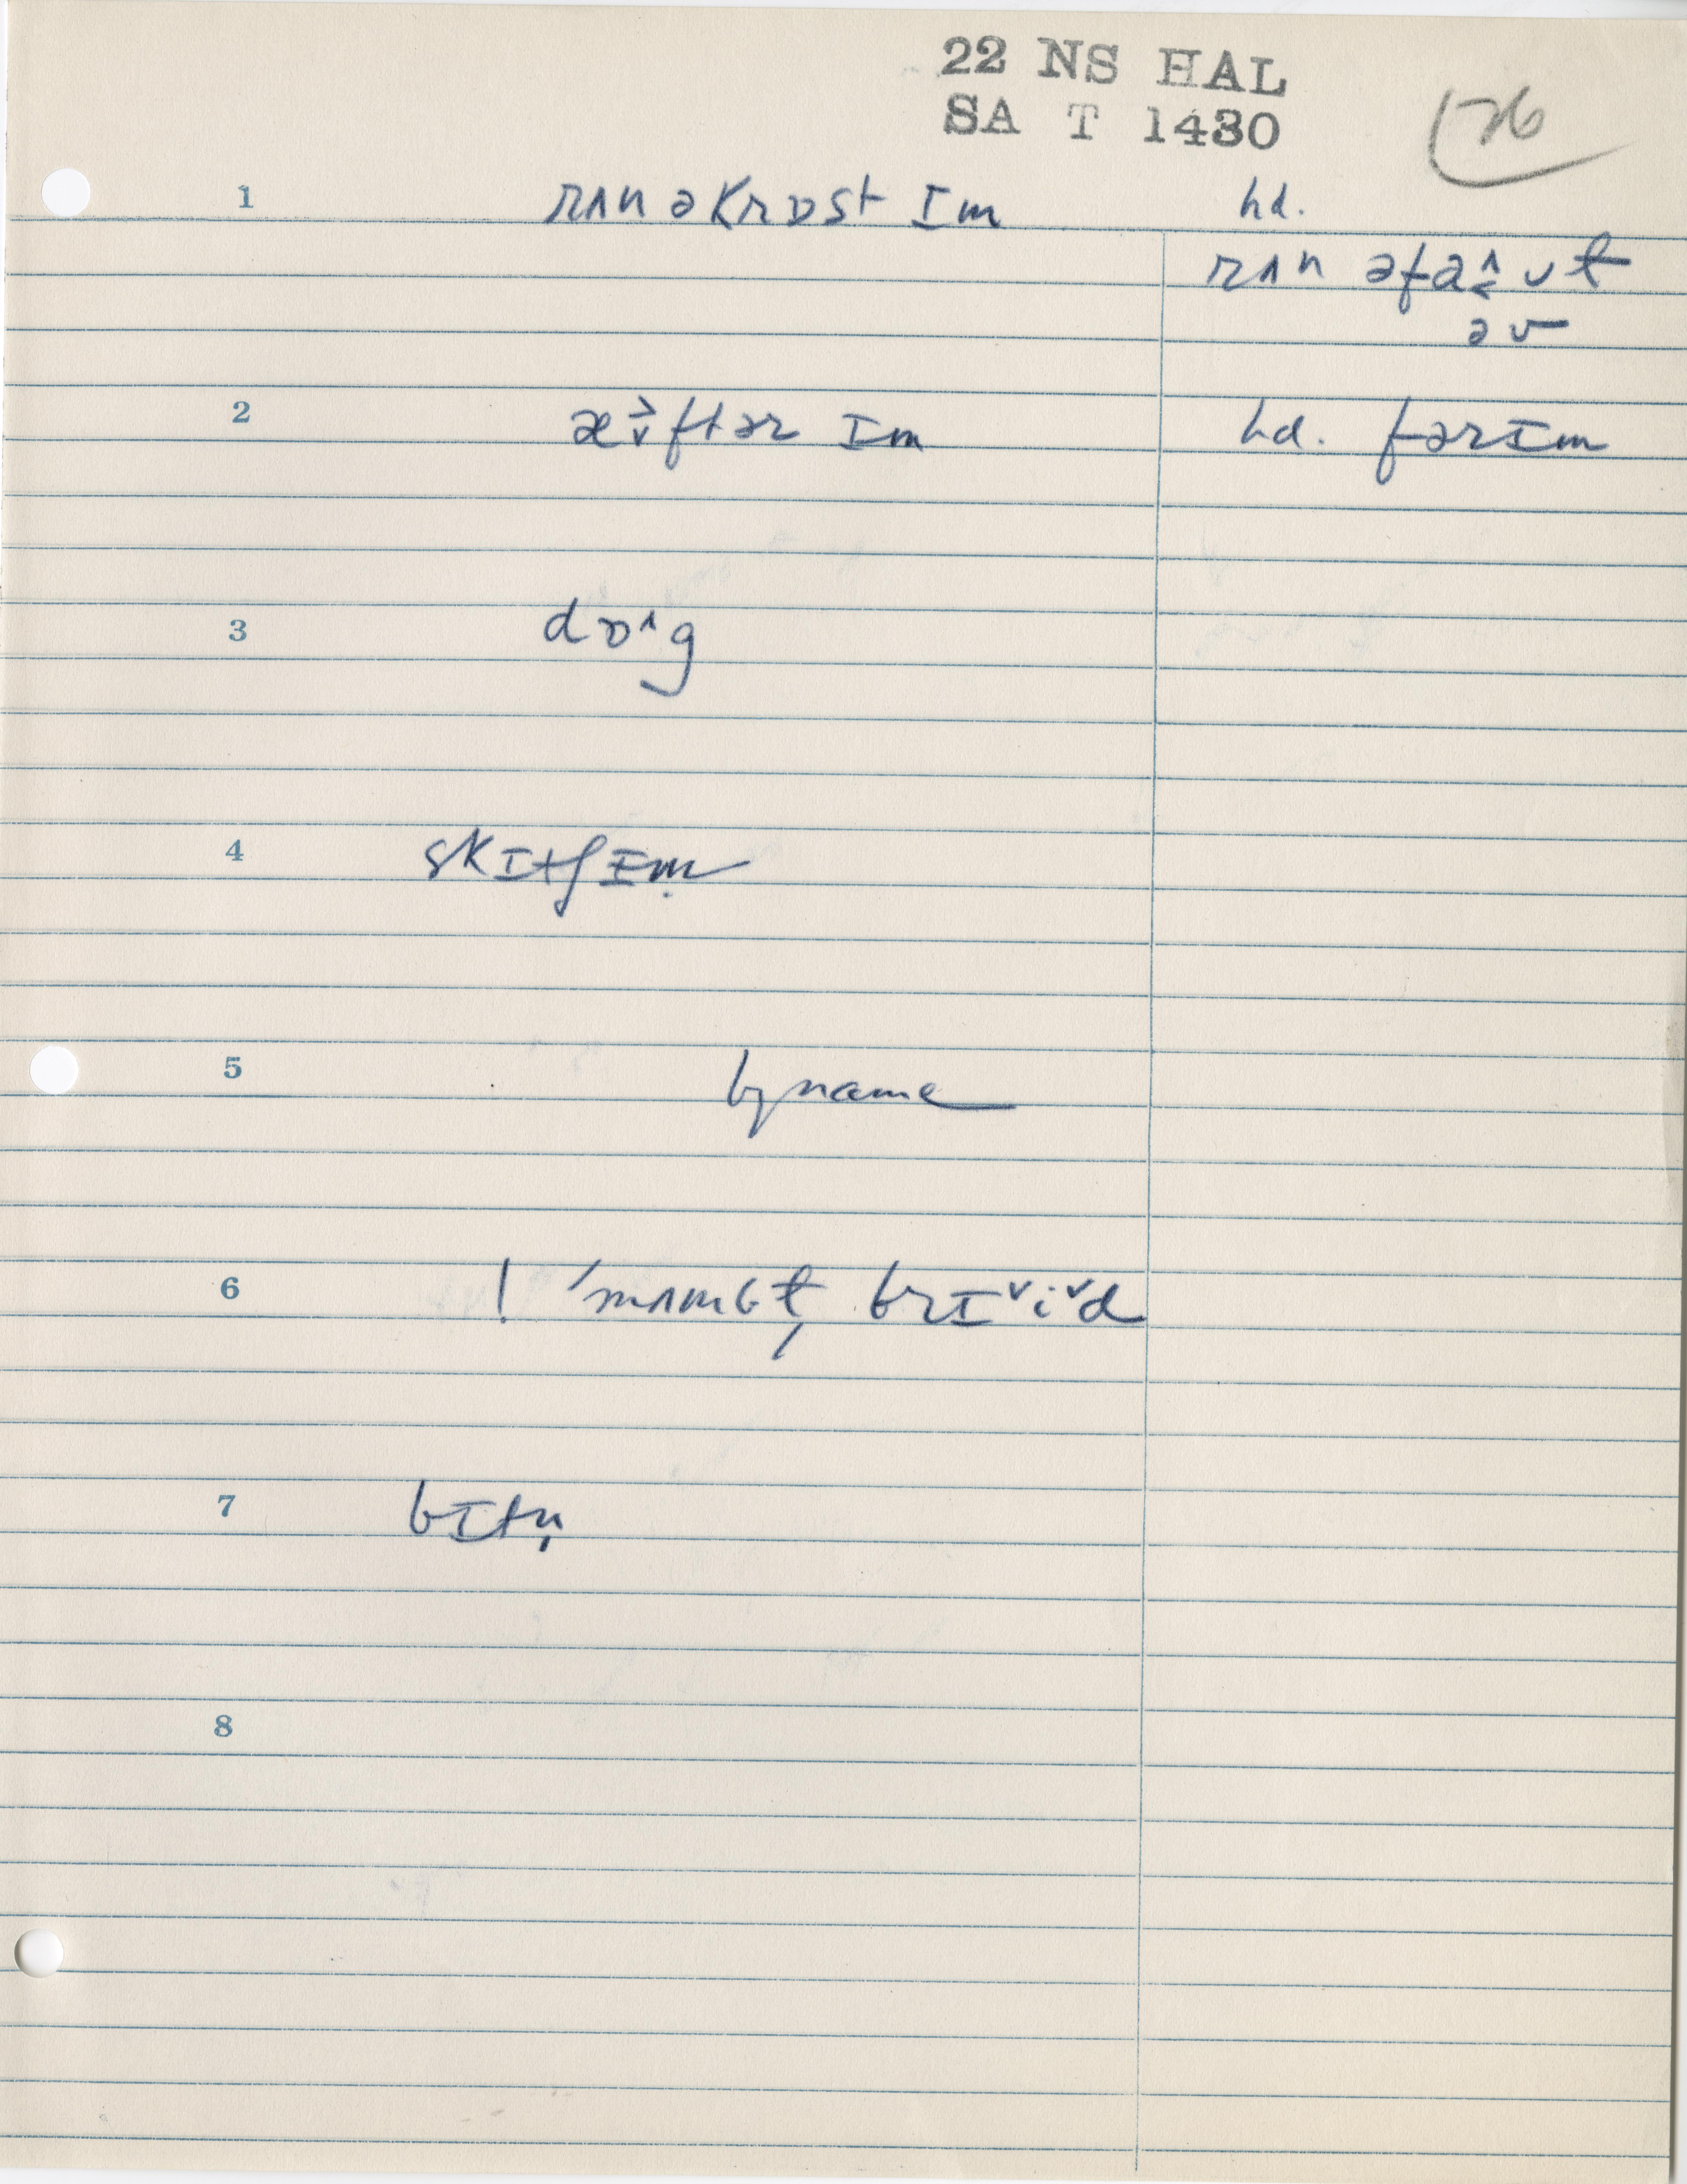 22 NS HAL
SA T 1430
126
1 rʌn əkrɒst ɪm hd.
rʌn əfa˄˂ʊt
əv
2 æ˃˅ftər ɪm hd. fərɪm
3 dɒ˄g
4 skɪtʃɪm
5 by name
6 ! 'mʌmbɫ̩ brɪ˅i˅d
7 bɪtn̩
8